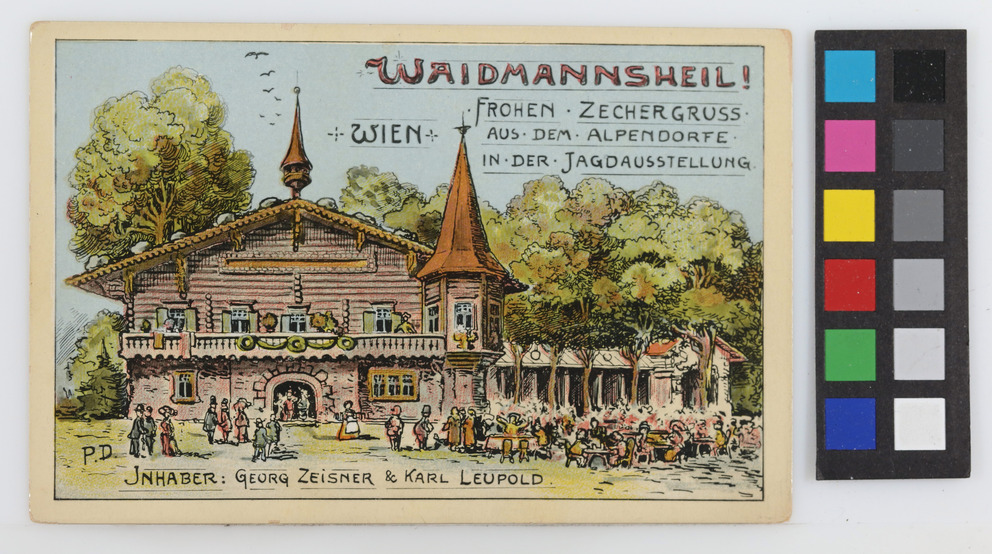 WAIDMANNSHEIL!
FROHEN · ZECHERGRUSS ·
WIEN
AUS · DEM · ALPENDORFE ·
IN · DER · JAGDAUSSTELLUNG.
P.D.
JNHABER: GEORG ZEISNER & KARL LEUPOLD.